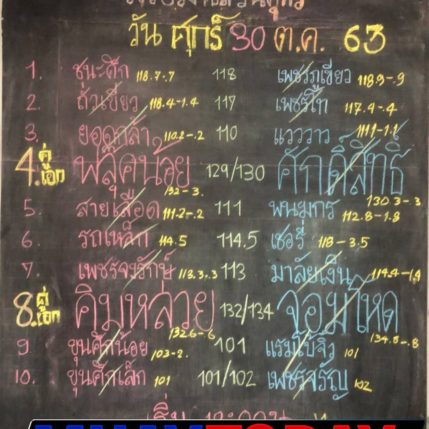 วัน ศุกร์ 30 ต.ค. 63
1. ชนะศึก 118.7-.7 118 เพชรภูเขียว 118.9-.9
2. ถั่วเขียว 118.4-1.4 117 เพชรโต 117.4-.4
3. ยอดกล้า 110.2-.2 110 แวววาว 111.1-1.1
4. คู่เอก พลิคน้อย 132-3. 129/130 ศักดิ์สิทธิ์ 130.3-.3
5. สายเลือด 111.2-.2 111 พนมกร 112.8-1.8
6. รถเหล็ก 114.5 114.5 เชอรี่ 118-3.5
7. เพชรจงรักษ์ 113.3-.3 113 มาลัยเงิน 114.4-1.4
8. คู่เอก คิมหล่วย 132.6-.6 132/134 จอมโหด 134.8-.8
9 ขุนศึกน้อย 103-2. 101 แรมโบ้จิ๋ว 101
10. ขุนศึกเล็ก 101 101/102 เพชรจรัญ 102